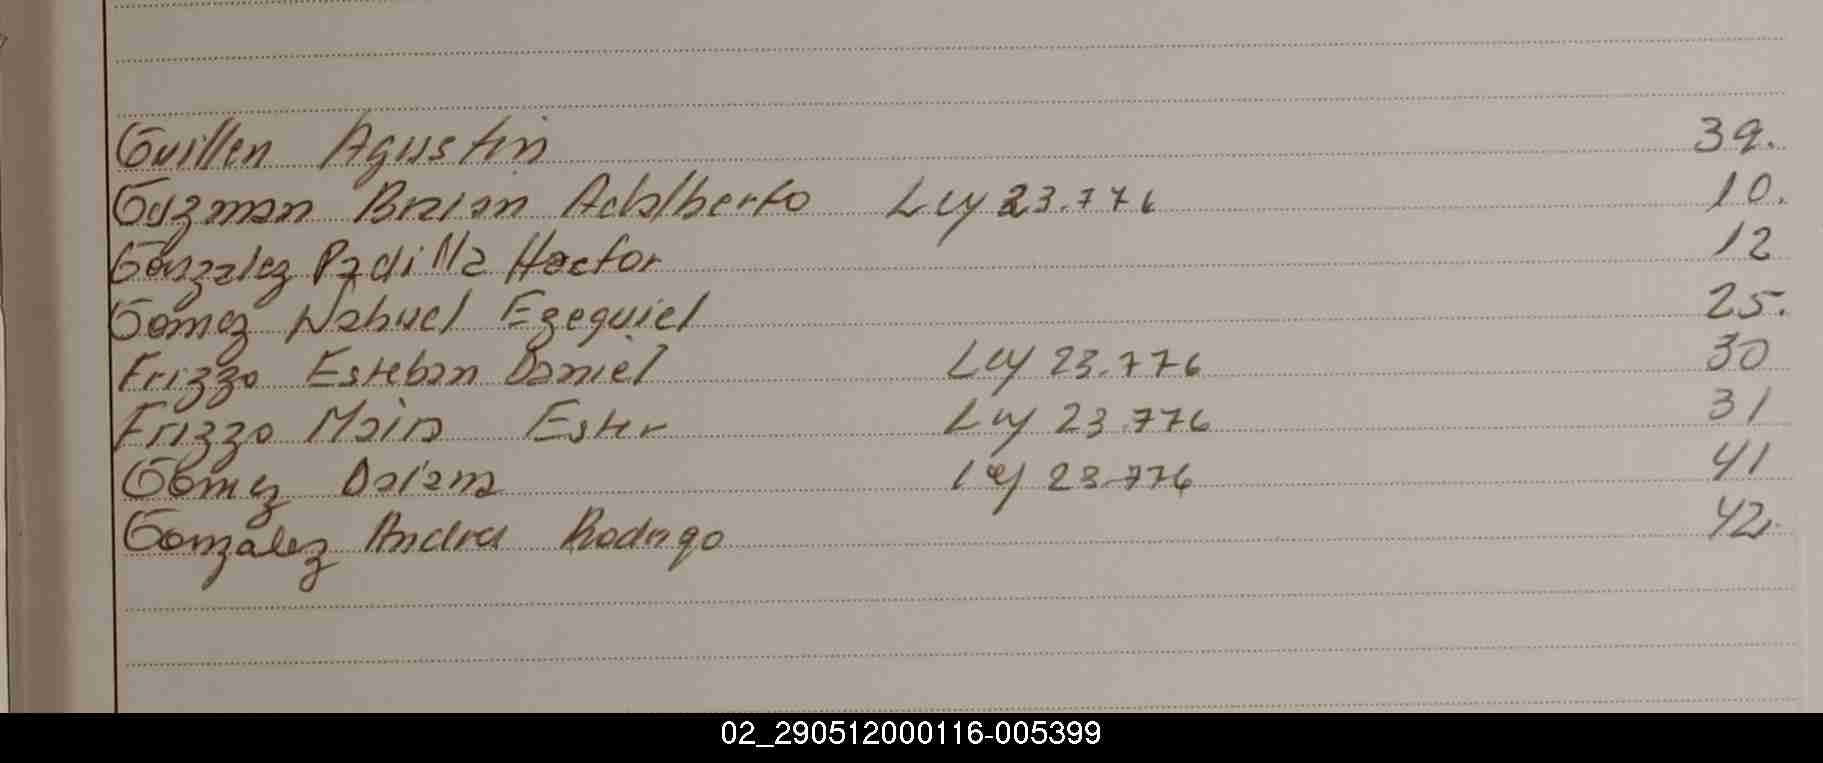 Guillen Agustin 39.
Guzman Braian Adalberto Ley 23.776 10.
Gonzalez Padilla Hector 12
Gomez Nahuel Ezequiel 25.
Frizzo Esteban Daniel Ley 23.776 30
Frizzo Maira Ester Ley 23.776 31
Gomez Daiana Ley 23.776 41
Gonzalez Andres Rodrigo 42.
02_290512000116-005399